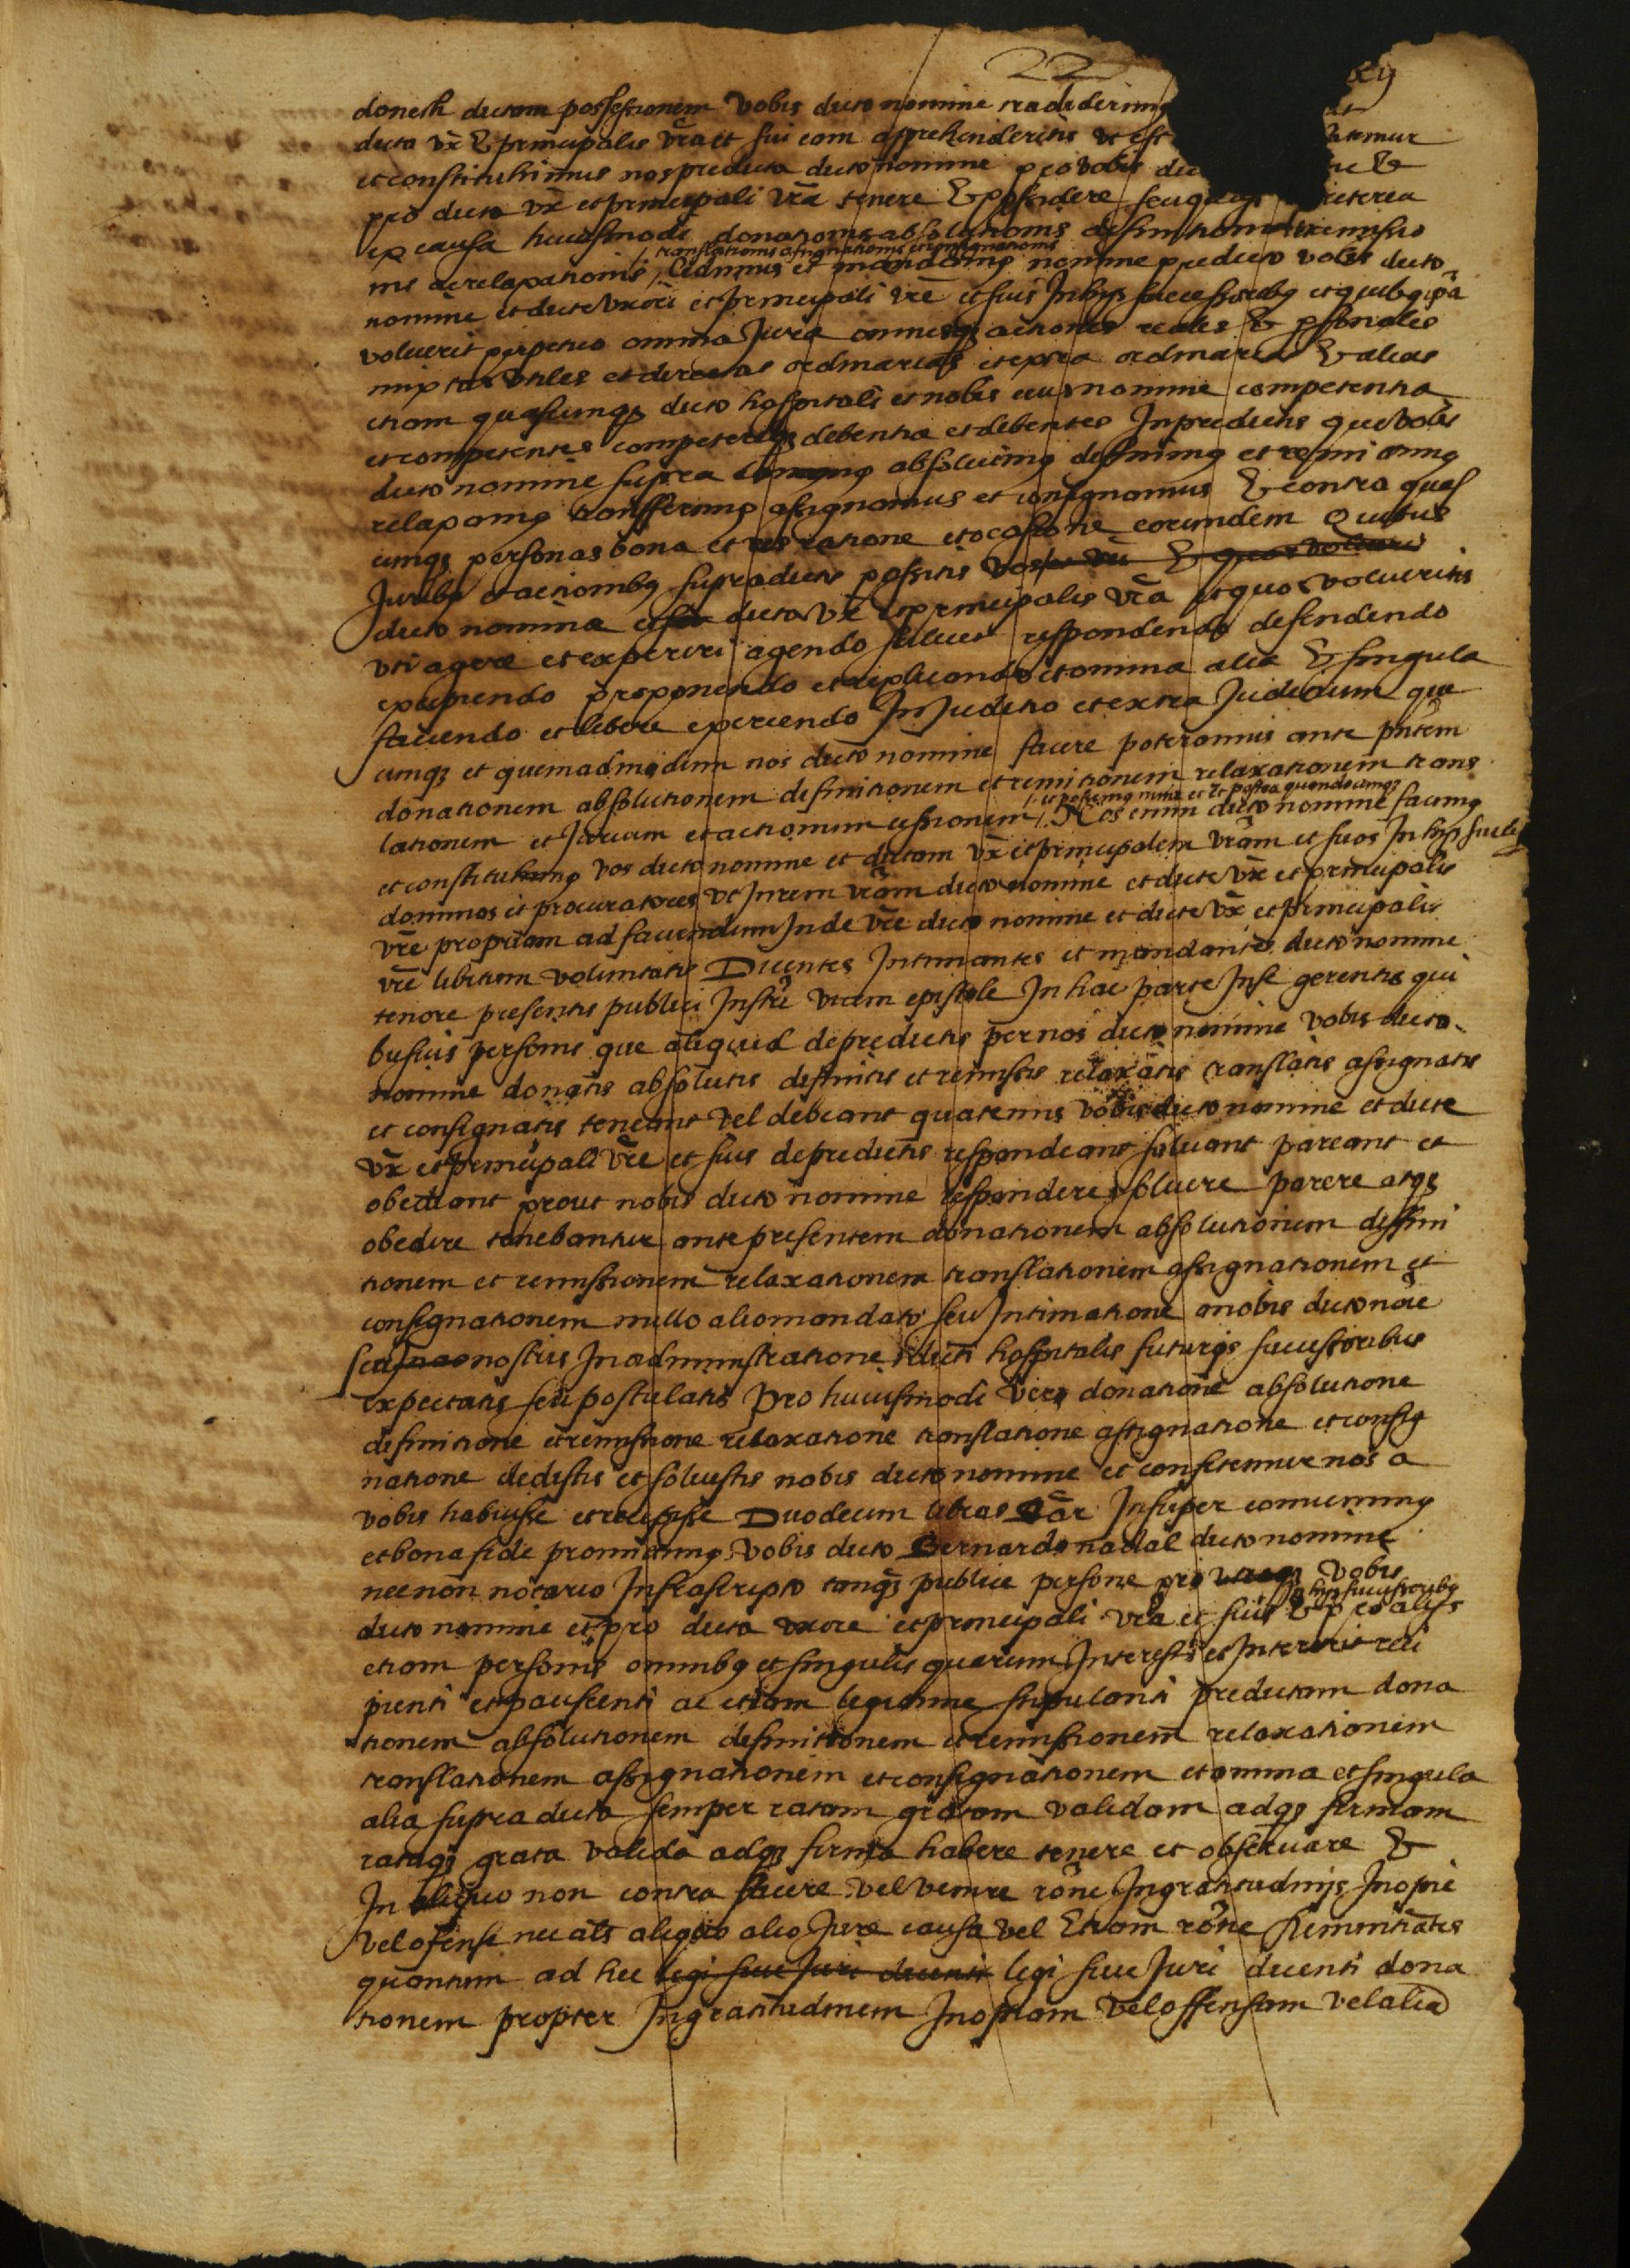 22 xij
donech dictam possessionem vobis dicto nomine tradiderimus
dicta vx̄ & principalis vr̄a et sui eam apprehenderitis ut est
et constituhimus nos predicta dicto nomine pro vobis &
pro dicta vx̄ et principali vr̄a tenere & possidere seu quasi preterea
ex causa huiusmodi donationis absolutionis definitionis remissio
translationis assignationis et consignationis
nis ac relaxationis cedimus et mandamus nomine predicto vobis dicto
nomine et dicte vxori et principali vr̄e et suis In hijs successoribus et quibus ipā
voluerit perpetuo omnia Jura omnesq actiones reales & psonales
mixtas utiles et directas ordinarias et extra ordinarias & alias
etiam quascumq dicto hospitali et nobis eius nomine competentia
et competentes competereq debentia et debentes In predictis que vobis
dicto nomine supra absolvimus definimus et remittimus
relaxamus transferimus assignamus et consignamus & contra quas
cumq personas bona et res ratione et occasione eorumdem Quibus
Juribus et actionibus supradictis possitis vos & quos volueri
dicto nomine dicta vx̄ et principalis vr̄a et quos volueritis
uti agere et experiri agendo scilicet respondendo defendendo
excipiendo proponendo et replicando et omnia alia & singula
faciendo et libere exercendo In Juditio et extra Juditium que
cumq et quemadmodum nos dicto nomine facere poteramus ante pn̄tem
donationem absolutionem definitionem et remitionem relaxationem trans
et possemus nunc et postea quandocumq
lationem et Jurium et actionum cessionem Nos enim dicto nomine facimus
et constituhimus vos dicto nomine et dictam vx̄ et principalem vr̄am et suos In hijs
dominos et procuratores ut In rem vr̄am dicto nomine et dicte vx̄ et principalis
vr̄e propriam ad faciendum Inde vr̄e dicto nomine et dicte vx̄ et principalis
vr̄e libitum voluntatis Dicentes Intimantes et mandantes dicto nomine
tenore presentis publici Instrī vicem epistole In hac parte In se gerentis qui
busuis personis que aliquid de predictis per nos dicto nomine vobis dicto
nomine donatis absolutis definitis et remissis relaxatis translatis assignatis
et consignatis teneant vel debeant quatenus vobis dicto nomine et dicte
vx̄ et principali vr̄e et suis de predictis respondeant solvant pareant et
obediant prout nobis dicto nomine respondere solvere parere atq
obedire tenebantur ante presentem donationem absolutionem diffini
tionem et remissionem relaxationem translationem assignationem et
consignationem nullo alio mandato seu Intimatione a nobis dicto noīe
seu nostris In administratione dicti hospitalis futuris successoribus
expectatis seu postulatis Pro huiusmodi vero donatione absolutione
definitione et remissione relaxatione translatione assignatione et consig
natione dedistis et solvistis nobis dicto nomine et confitemur nos a
vobis habuisse et recepisse Duodecim libras Insuper convenimus
et bona fide promittimus vobis dicto Bernardo nadal dicto nomine
necnon notario Infrascripto tanq̄ publice persone pro vobis
In hijs successoribus
dicto nomine et pro dicta uxore et principali vr̄a et suis & pro alijs
etiam personis omnibus et singulis quarum Interest et Intererit reci
pienti et paciscenti ac etiam legitime stipulanti predictam dona
tionem absolutionem definitionem et remissionem relaxationem
translationem assignationem et consignationem et omnia et singula
alia supradicta semper ratam gratam validam adq firmam
rataq grata valida adq firma habere tenere et observare &
In aliquo non contra facere vel venire rōne Ingratitudinis Inopie
vel ofense nec als aliquo alio Jure causa vel Etiam rōne
quantum ad hec legi sive Juri dicenti legi sive Juri dicenti dona
tionem propter Ingratitudinem Inopiam vel offensam vel alia